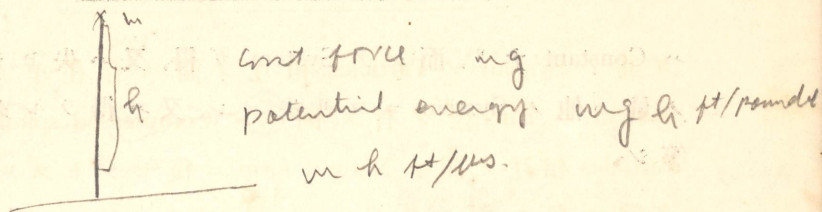 m
const force mg
h
potential energy mgh ft/pounds
m h ft/lbs.